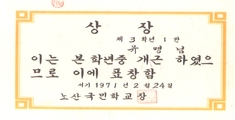 상 장
제 3 학년 1 반
유 명 님
이는 본 학년중 개근 하였으
므로 이에 표창함
서기 1971 년 2 월 24 일
노산 국민학교장